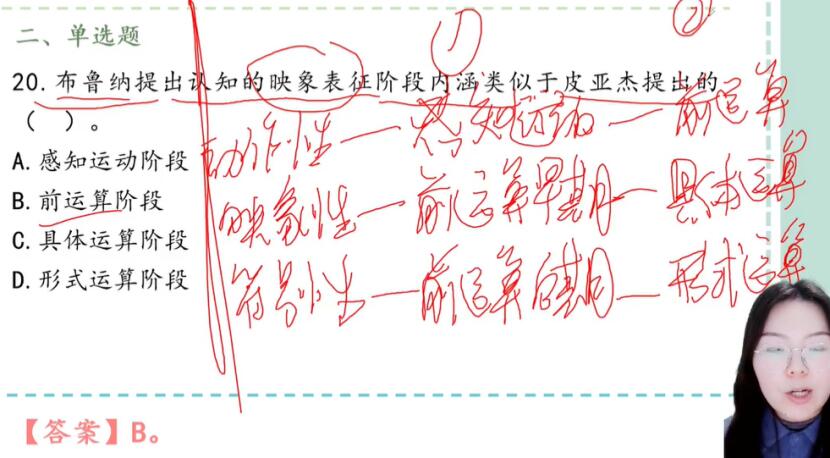 二、单选题
①
②
20. 布鲁纳提出认知的映象表征阶段内涵类似于皮亚杰提出的
（ ）。
A. 感知运动阶段
B. 前运算阶段
C. 具体运算阶段
D. 形式运算阶段
动作性—感知运动—前运算
映象性—前运算早期—具体运算
符号性—前运算后期—形式运算
【答案】B。